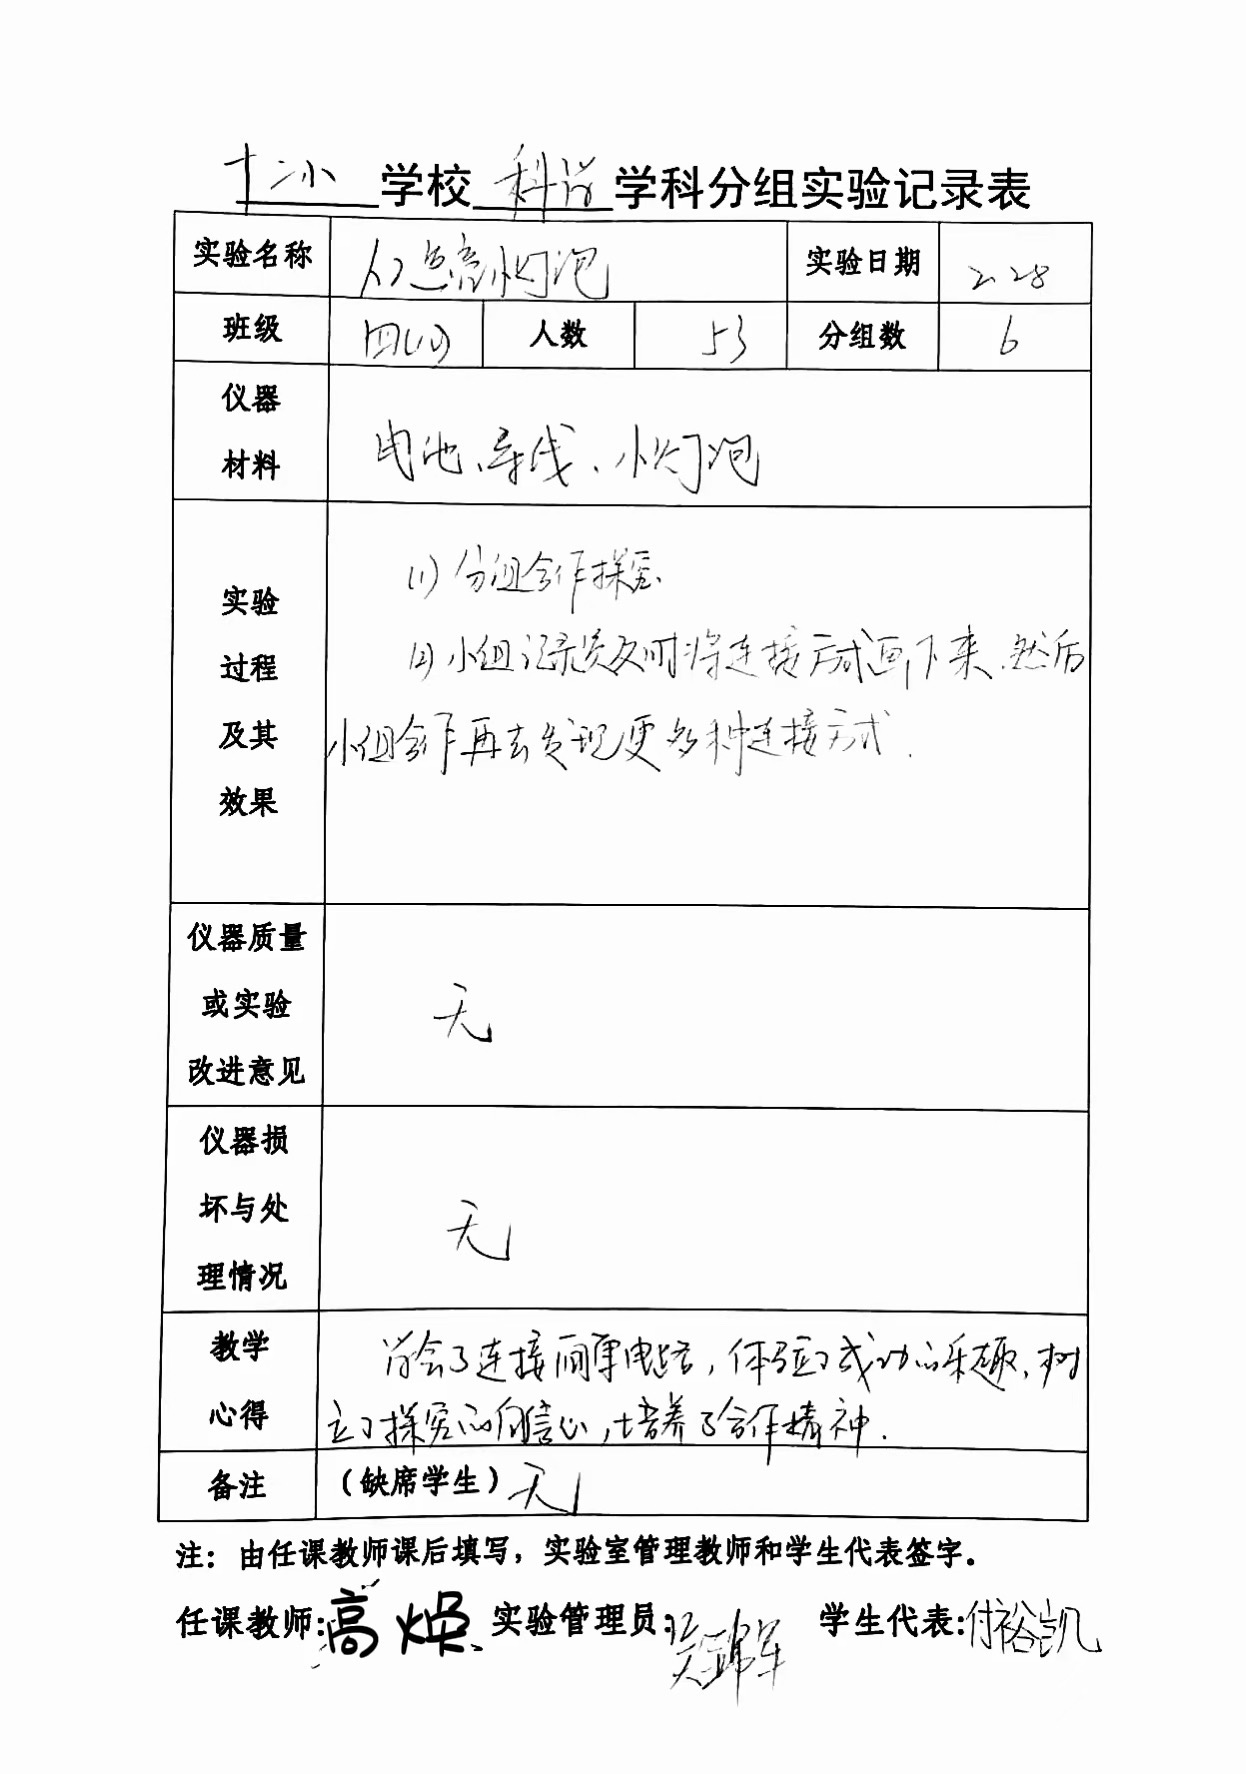 十二小 学校 科学 学科分组实验记录表
实验名称 点亮小灯泡 实验日期 2.28
班级 人数 53 分组数 6
仪器
材料
电池、导线、小灯泡
实验
过程
及其
效果
(1) 分组合作探究
(2) 小组记录员及时将连接方式画下来,然后
小组合作再去发现更多种连接方式.
仪器质量
或实验
改进意见
无
仪器损
坏与处
理情况
无
教学
心得
学会了连接简单电路,体验了成功的乐趣,树
立了探究的自信心,培养了合作精神.
备注 (缺席学生) 无
注:由任课教师课后填写,实验室管理教师和学生代表签字。
任课教师:高焕 实验管理员: 学生代表:付裕凯